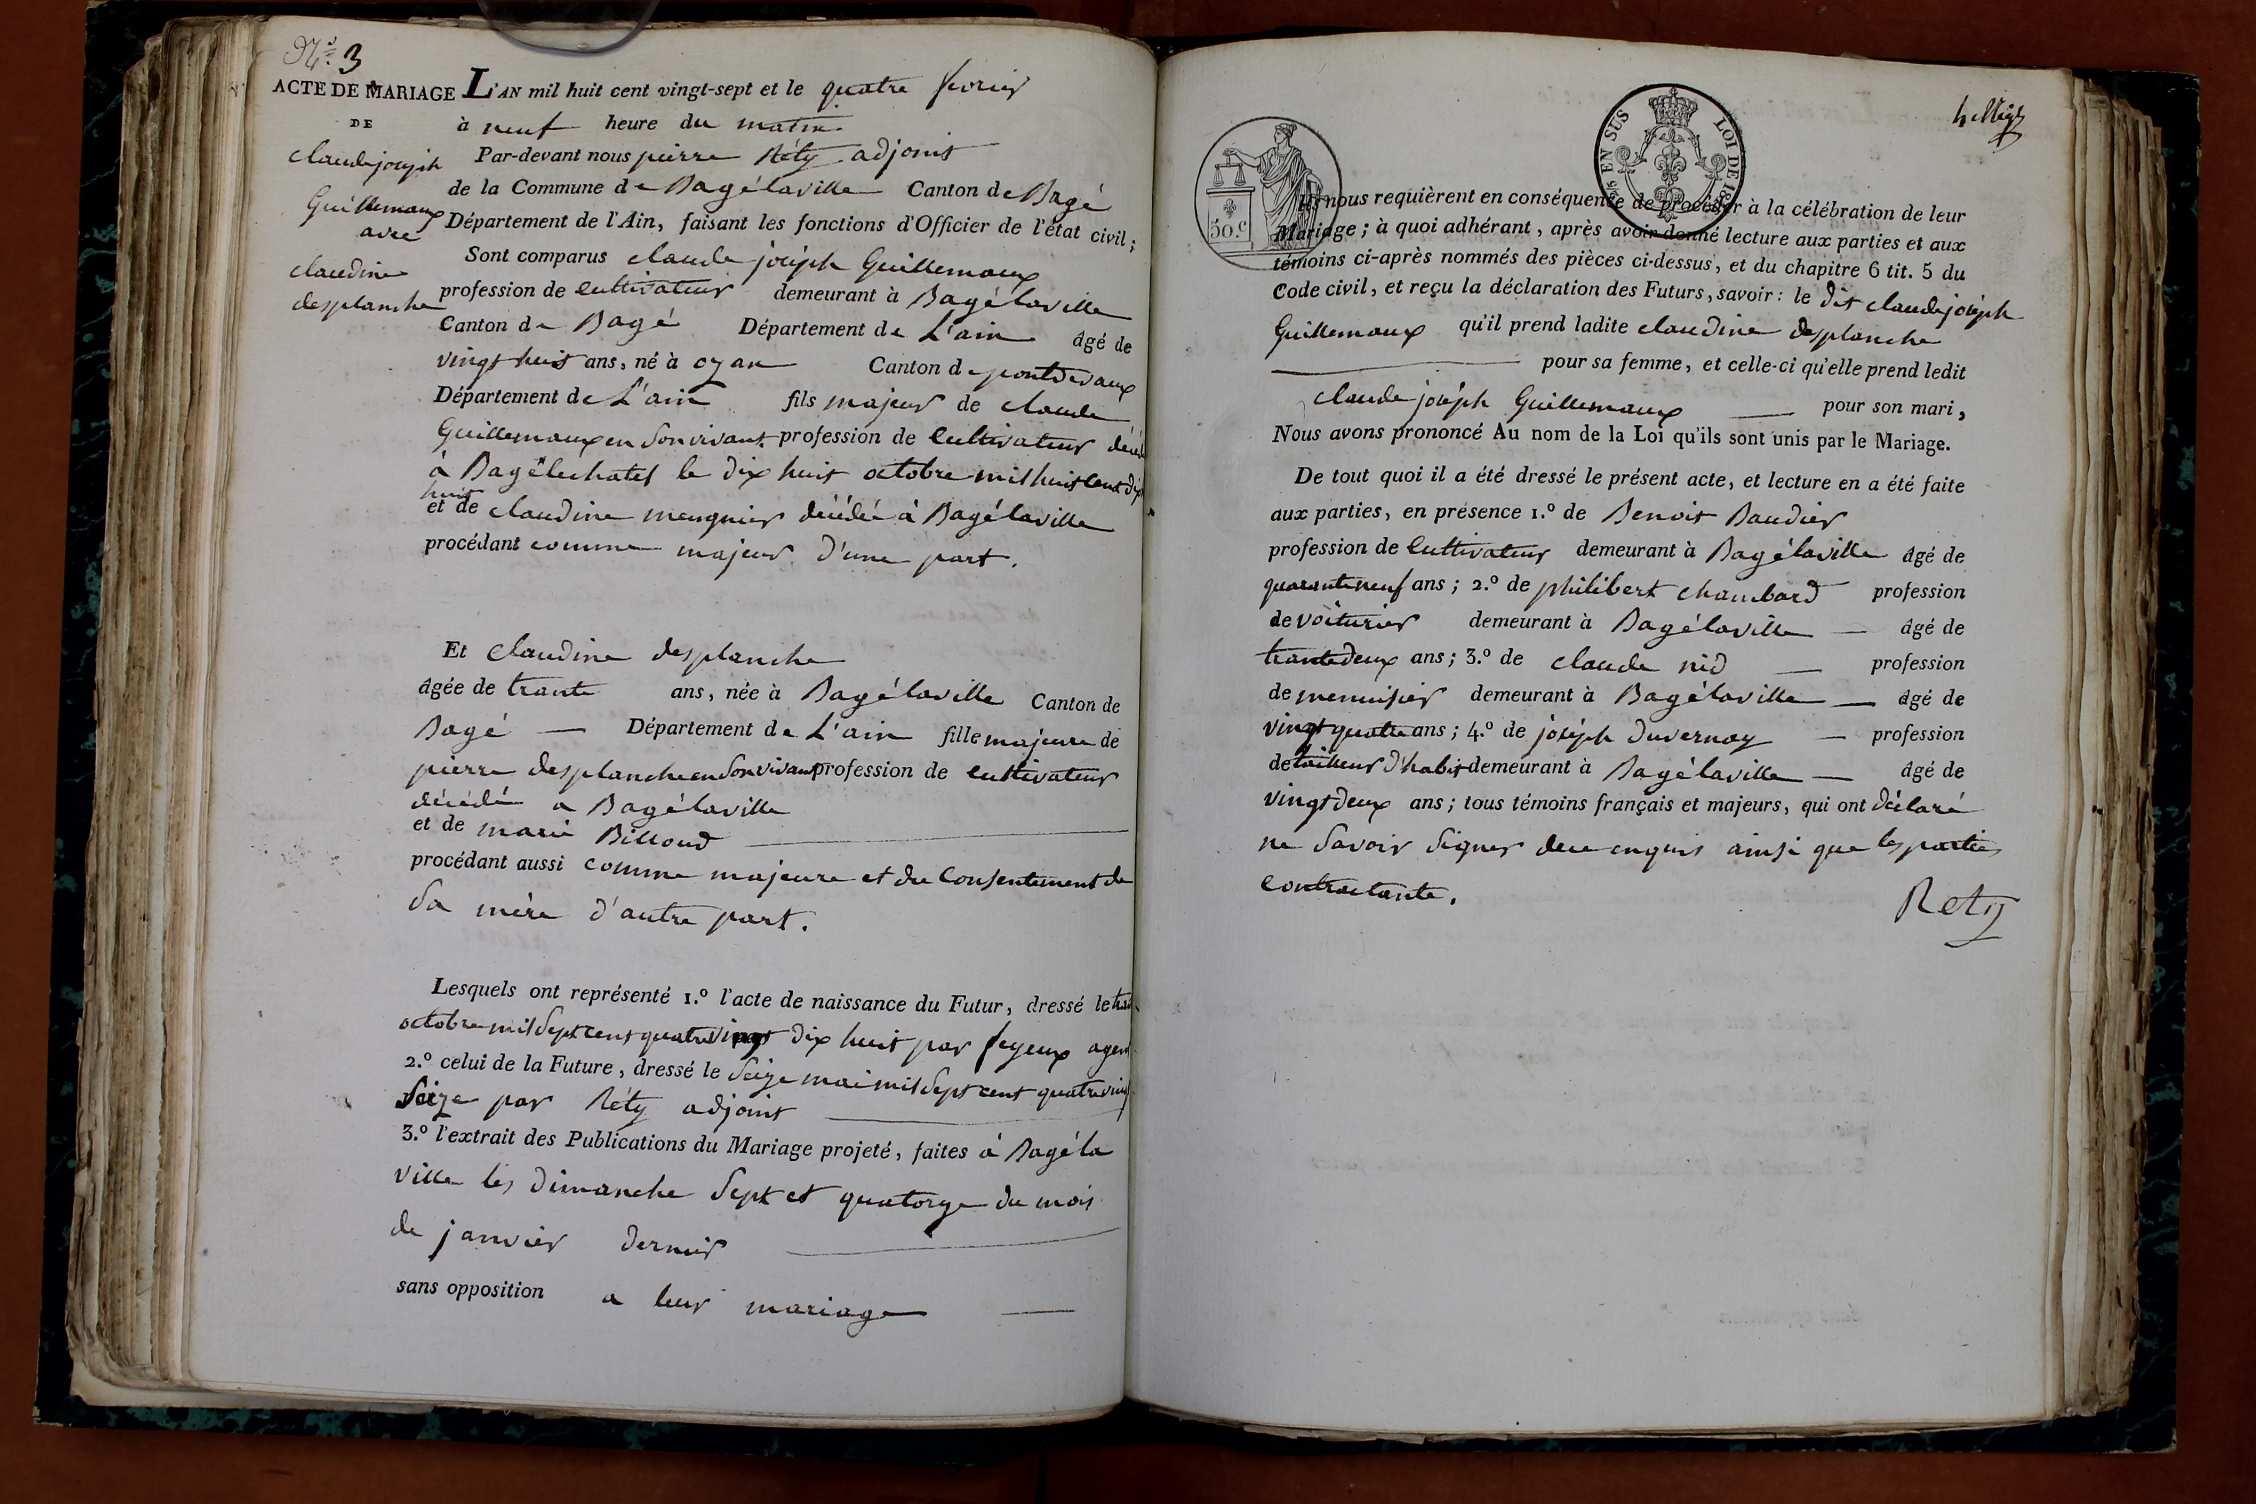 N.° 3
ACTE DE MARIAGE
DE
claude joseph
Guillemaux
avec
claudine
desplanche
L'AN mil huit cent vingt-sept et le quatre fevrier
à neuf heure du matin
Par-devant nous pierre Réty adjoint
de la Commune de Bagélaville Canton de Bagé
Département de l'Ain, faisant les fonctions d'Officier de l'état civil;
Sont comparus claude joséph Guillemaux
profession de cultivateur demeurant à Bagélaville
Canton de Bagé Département de L'ain âgé de
vingt huit ans, né à ozan Canton de pontdevaux
Département de L'ain fils majeur de claude
Guillemaux en son vivant profession de cultivateur
à Bagélechatel le dix huit octobre mil huit cent dix
huit
et de claudine meugnier décédée à Bagélaville
procédant comme majeur d'une part.
Et claudine desplanche
âgée de trante ans, née à Bagélaville Canton de
Bagé Département de L'ain fille majeure de
pierre desplanche en son vivant profession de cultivateur
décédé a Bagélaville
et de marie Billoud
procédant aussi comme majeure et du consentement de
sa mère d'autre part.
Lesquels ont représenté 1.° l'acte de naissance du Futur, dressé le
octobre mil sept cent quatre vingt dix huit par feyeux agent
2.° celui de la Future, dressé le seize mai mil sept cent quatre vingt
seize par Réty adjoint
3.° l'extrait des Publications du Mariage projeté, faites à Bagéla
ville les dimanche sept et quatorze du mois
de janvier dernier
sans opposition a leur mariage
50.c
EN SUS LOI DE
Ils nous requièrent en conséquence de procéder à la célébration de leur
Mariage; à quoi adhérant, après avoir donné lecture aux parties et aux
témoins ci-après nommés des pièces ci-dessus, et du chapitre 6 tit. 5 du
Code civil, et reçu la déclaration des Futurs, savoir: le dit claude joséph
Guillemaux qu'il prend ladite claudine desplanche
pour sa femme, et celle-ci qu'elle prend ledit
claude joséph Guillemaux pour son mari,
Nous avons prononcé Au nom de la Loi qu'ils sont unis par le Mariage.
De tout quoi il a été dressé le présent acte, et lecture en a été faite
aux parties, en présence 1.° de Benoit Baudier
profession de cultivateur demeurant à Bagélaville âgé de
quarante neuf ans; 2.° de philibert chambard profession
de voiturier demeurant à Bagélaville âgé de
trante deux ans; 3.° de claude nid profession
de menuisier demeurant à Bagélaville âgé de
vingt quatre ans; 4.° de joséph duvernay profession
de tailleur d'habit demeurant à Bagélaville âgé de
vingt deux ans; tous témoins français et majeurs, qui ont déclaré
ne savoir signer de ce enquis ainsi que les parties
contractante.
Rety